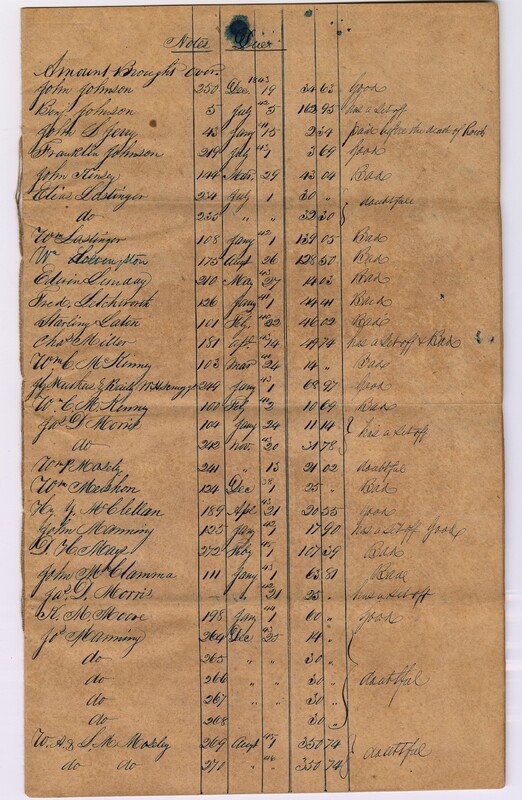 Notes Due
Amount Brought over
John Johnson 250 Dec 1843 19 34 63 Good
Benj Johnson 5 July 42 5 162 95 has a Set off
John S 43 Jany 15 2 34 paid before the death of
Franklin Johnson 219 July 1 3 69 Good
John Kinsey 144 Mar. 29 43 04 Bad
Elias Lastinger 234 July 1 30 " } doubtfull
do 235 " " 32 30
Wm Lastinger 108 Jany 42 1 139 05 Bad
Wm Livingston 175 Augt 26 128 50 Bad
Edwin Lindsay 210 May 43 27 14 03 Bad
Fred. Letchworth 126 Jany 41 1 44 41 Bad
Starling Laten 101 Feb. 40 22 46 02 Bad
Chas Miller 181 43 14 49 74 has a Set off & Bad
Wm C McKinny 103 Mar 41 24 14 " Bad
249 Jany 1 68 97 Good
Wm C. McKenny 100 Feb 2 10 69 Bad
Jas D Morris 104 Jany 24 11 14 } has a Set off
do 242 Nov 43 20 31 78
Wm P Mosely 241 " 13 21 02 doubtful
Wm Mershon 124 Dec 38 25 " Bad
Hy Y McClellan 189 Apr 43 21 20 55 Good
John Manning 125 Jany 42 1 17 90 has a Set off Good
D. H. Mays 272 Feby 45 1 107 39 Bad
John McClamma 111 Jany 43 1 63 81
Jas. D. Morris " " 42 21 25 " has a Set off
K. M. Moore 198 Jany 44 1 60 " Good
Jos Manning 264 Dec 43 25 14 " } doubtful
do 265 " " 30 "
do 266 " " 30 "
do 267 " " 30 "
do 268 30 "
W. A. & S. M. Mosely 269 Augt 45 1 350 74 } doubtful
do do 270 " 46 " 350 74